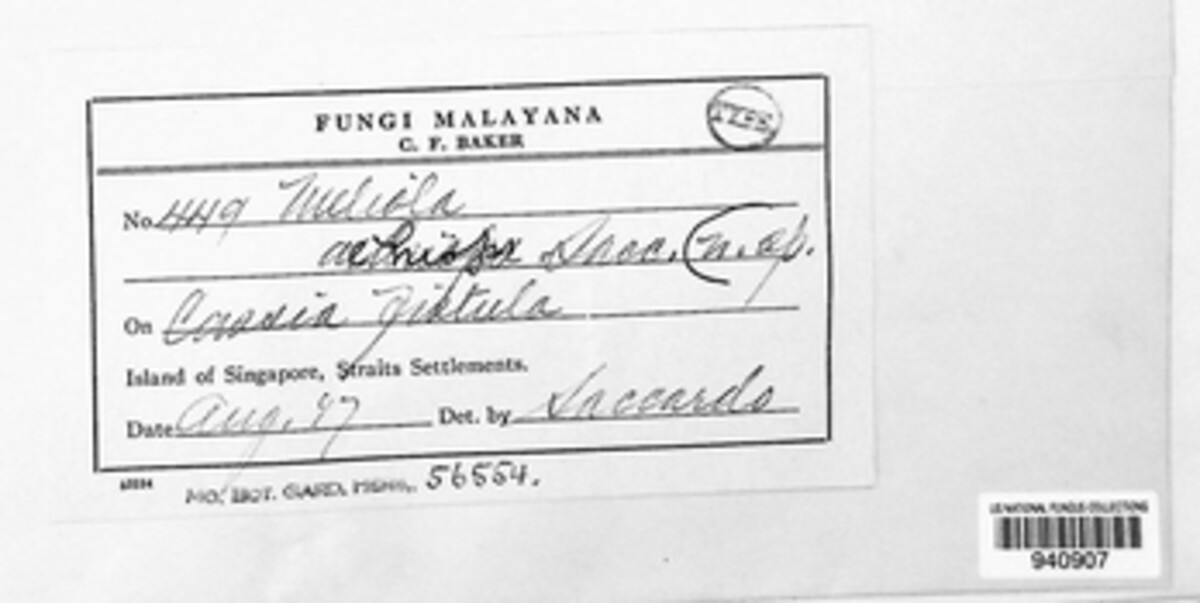 FUNGI MALAYANA
TYPE
C. F. BAKER
No. 449 Meliola
aethiops Sacc. (n. sp.
On Cassia Fistula
Island of Singapore, Straits Settlements.
Date Aug. '17 Det. by Saccardo
MO. BOT. GARD. HERB. 56554.
US NATIONAL FUNGUS COLLECTIONS
940907